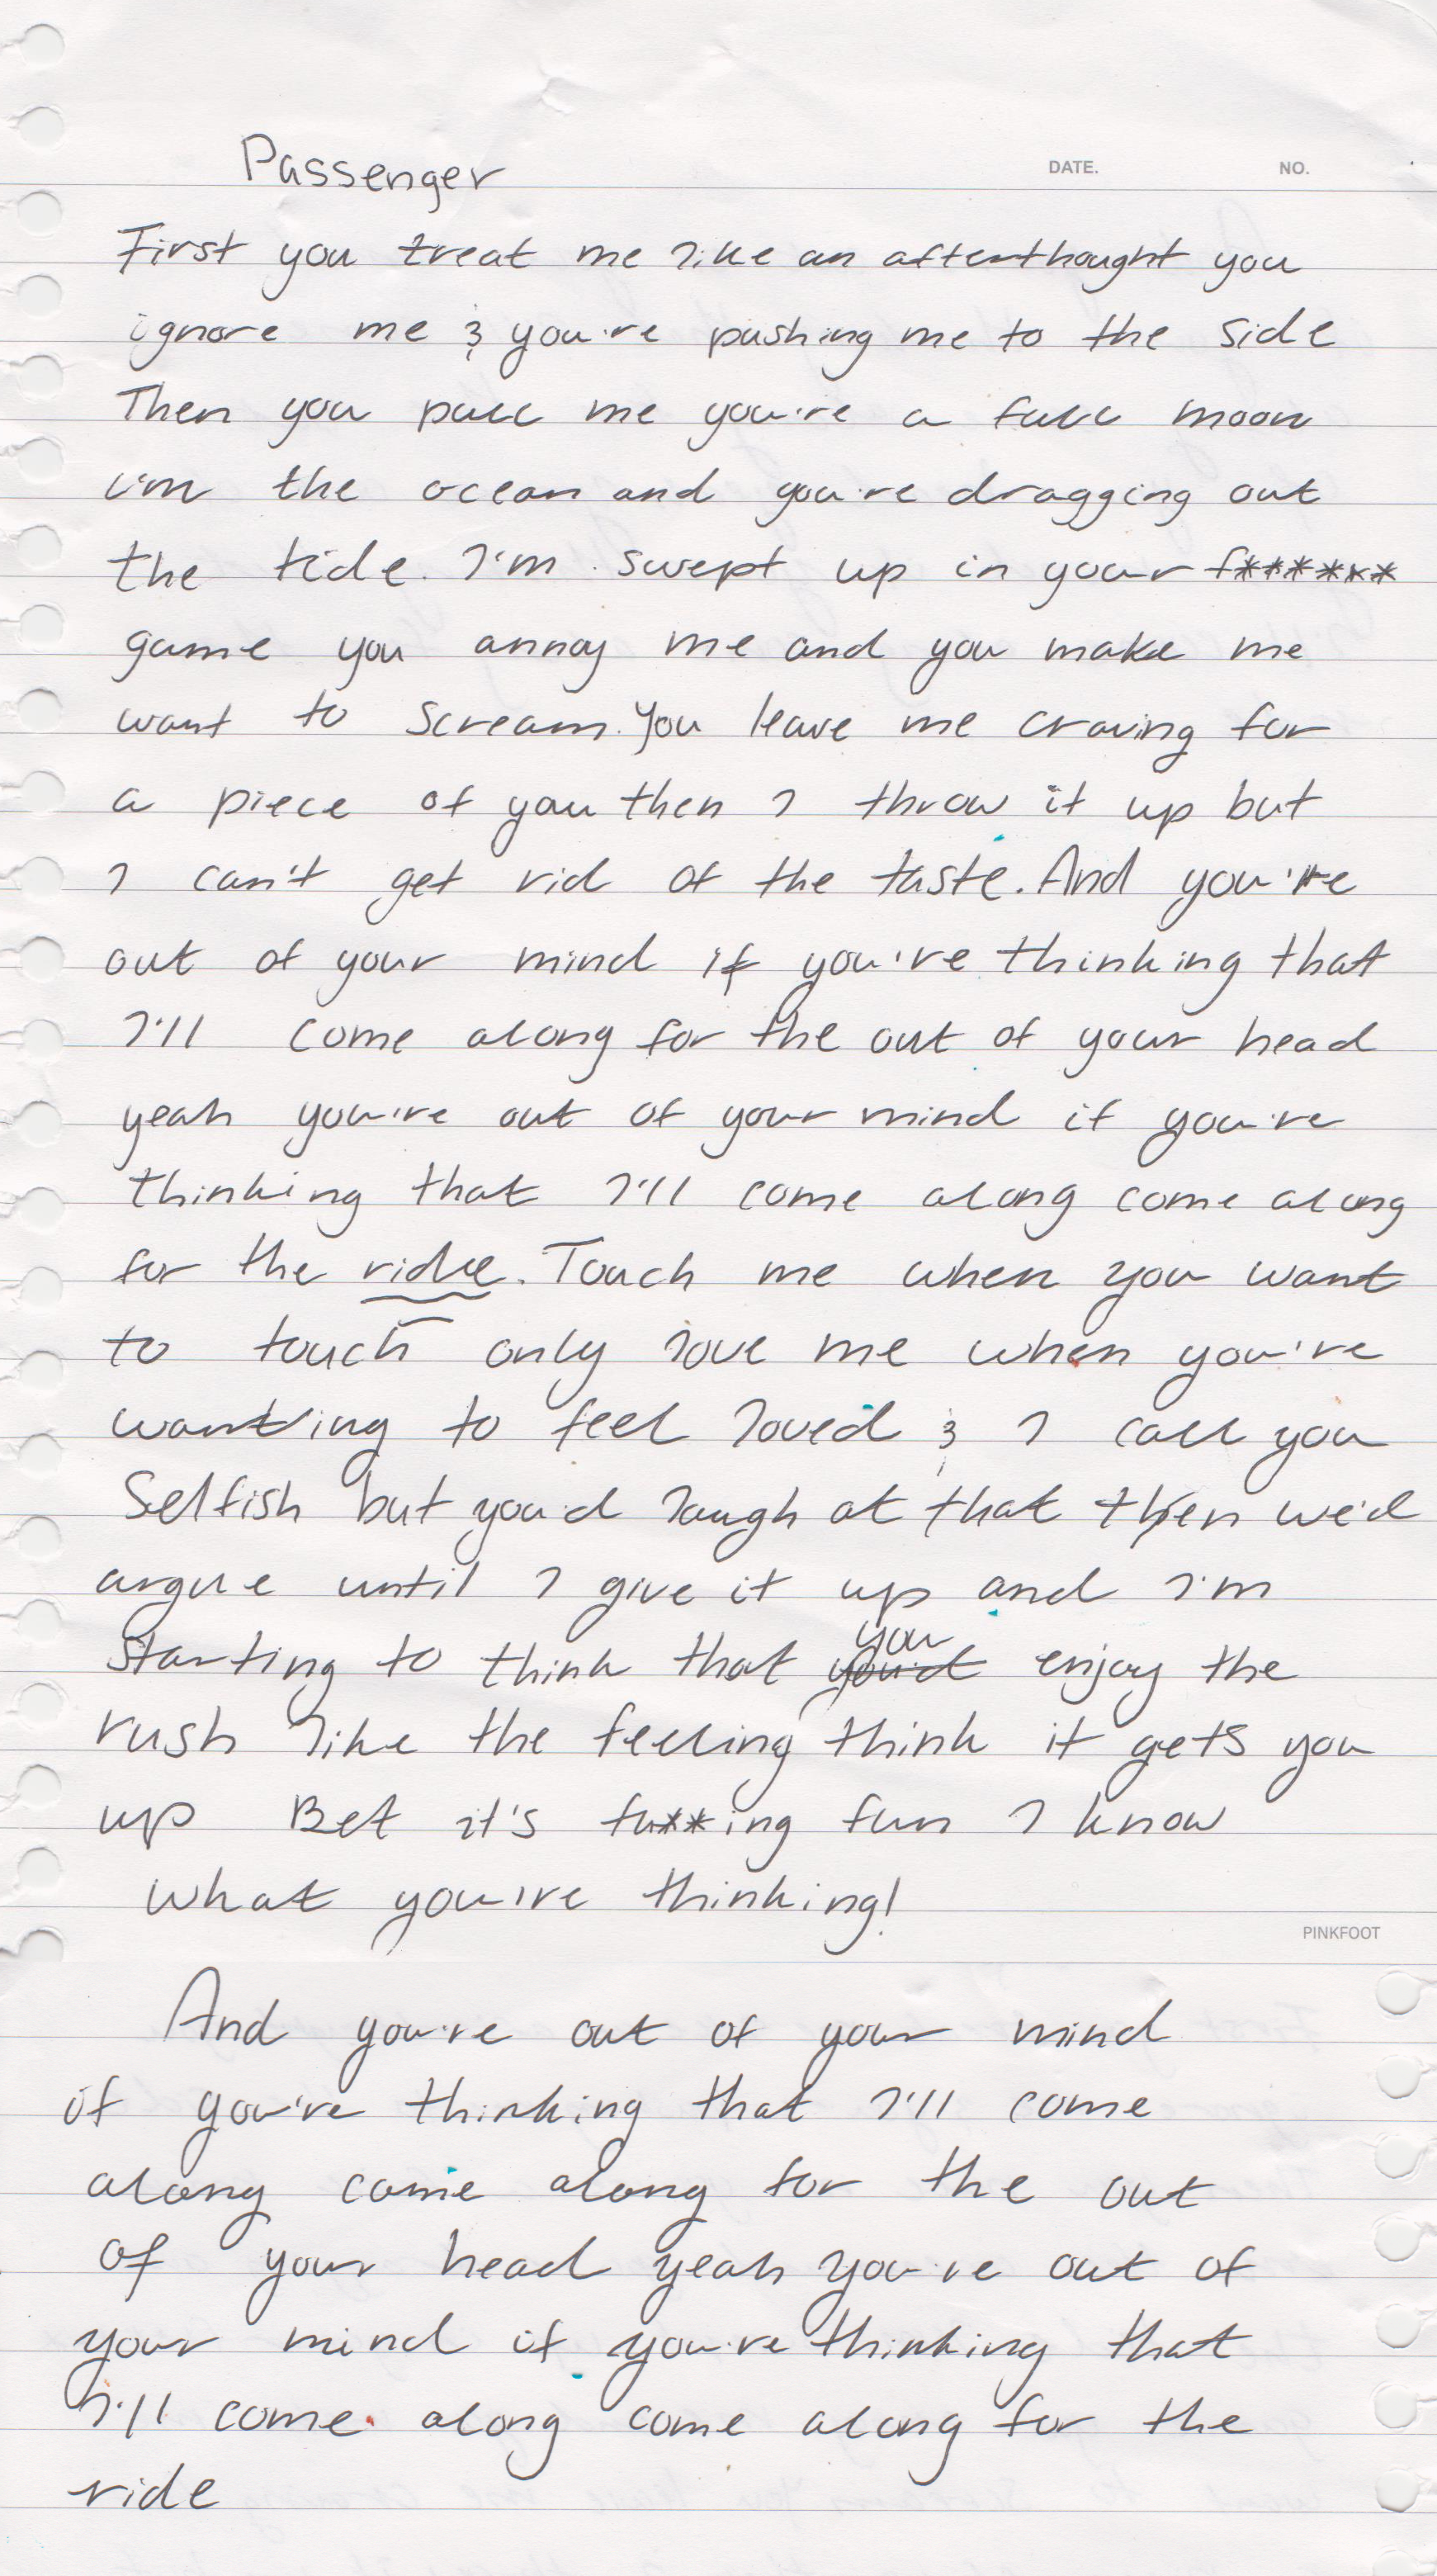 Passenger
DATE. NO.
First you treat me like an afterthought you
ignore me & you're pushing me to the side
Then you pull me you're a full moon
i'm the ocean and you're dragging out
the tide. I'm swept up in your f******
game you annoy me and you make me
want to scream. You leave me craving for
a piece of you then I throw it up but
I can't get rid of the taste. And you're
out of your mind if you're thinking that
I'll come along for the out of your head
yeah you're out of your mind if you're
thinking that I'll come along come along
for the ride. Touch me when you want
to touch only love me when you're
wanting to feel loved & I call you
Selfish but you'd laugh at that then we'd
argue until I give it up and I'm
starting to think that you'd you enjoy the
rush like the feeling think it gets you
up Bet it's fu**ing fun I know
what you're thinking!
PINKFOOT
And you're out of your mind
if you're thinking that I'll come
along come along for the out
of your head yeah you're out of
your mind if you're thinking that
I'll come along come along for the
ride